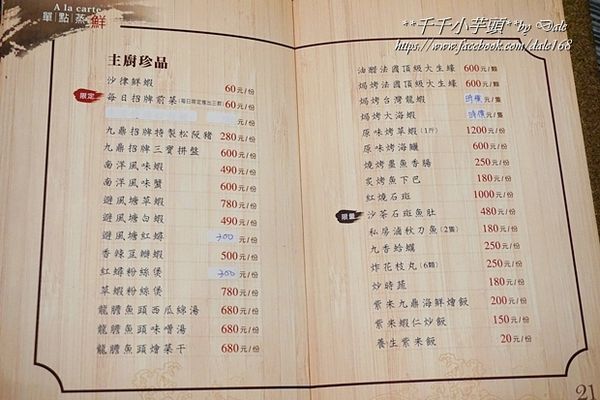 A la carte
單點蒸鮮
**千千小芋頭**by Dale
https://www.facebook.com/dale168
主廚珍品
沙律鮮蝦 60元/份
限定 每日招牌前菜(每日限定推出三款) 60元/份
九鼎招牌特製松阪豬 280元/份
九鼎招牌三寶拼盤 600元/份
南洋風味蝦 490元/份
南洋風味蟹 600元/份
避風塘草蝦 780元/份
避風塘白蝦 490元/份
避風塘紅蟳 700元/份
香辣豆瓣蝦 500元/份
紅蟳粉絲煲 700元/份
草蝦粉絲煲 780元/份
龍膽魚頭西瓜綿湯 680元/份
龍膽魚頭味噌湯 680元/份
龍膽魚頭燴菜干 680元/份
油醋法國頂級大生蠔 600元/顆
焗烤法國頂級大生蠔 600元/顆
焗烤台灣龍蝦 時價元/隻
焗烤大海蝦 時價元/隻
原味烤草蝦(1斤) 1200元/份
原味烤海鱺 600元/份
燒烤墨魚香腸 250元/份
炙烤魚下巴 180元/份
紅燒石斑 1000元/份
限量 沙茶石斑魚肚 480元/份
私房滷秋刀魚(2隻) 180元/份
九香蛤蠣 250元/份
炸花枝丸(6顆) 250元/份
炒時蔬 180元/份
紫米九鼎海鮮燴飯 200元/份
紫米蝦仁炒飯 150元/份
養生紫米飯 20元/份
21